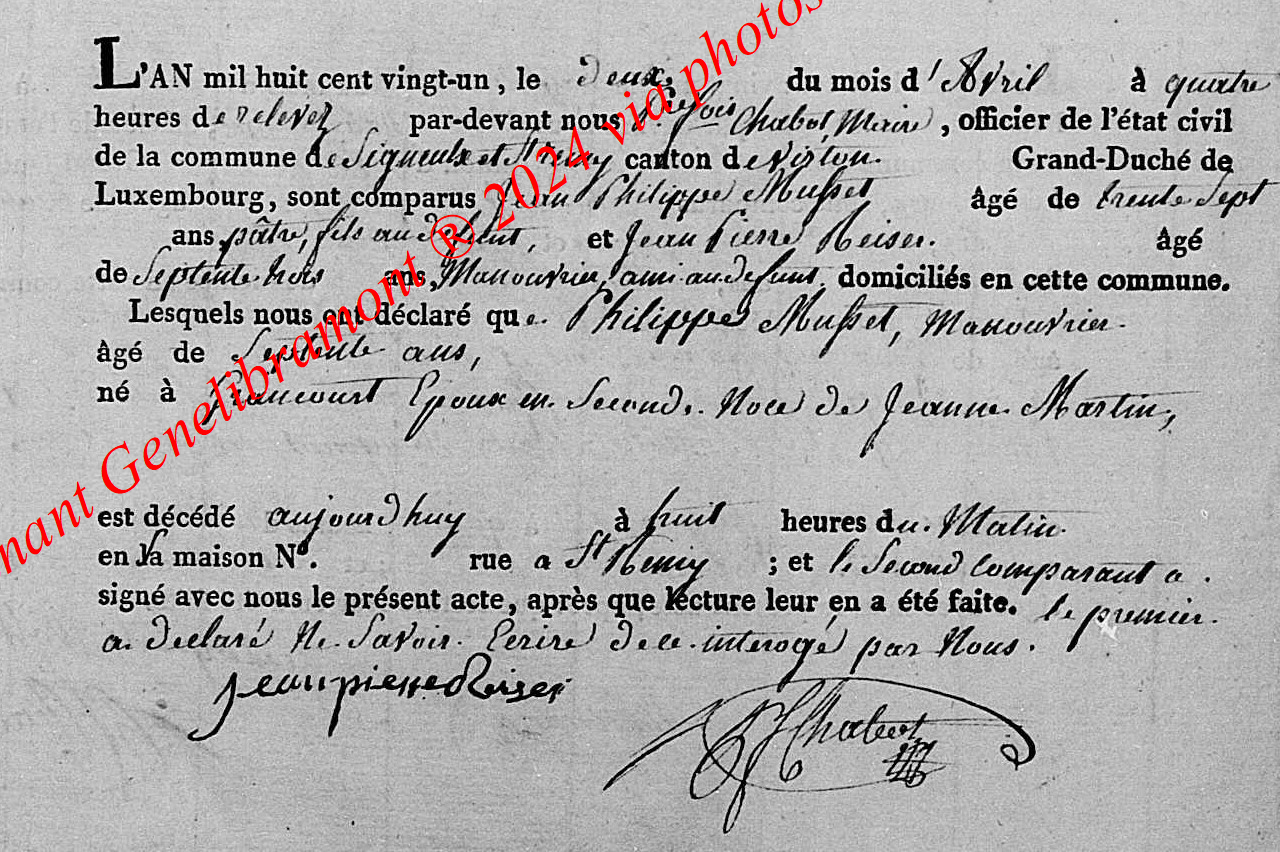 L'AN mil huit cent vingt-un, le deux, du mois d'Avril à quatre
heures de relevez par-devant nous P. fois Chabot, Maire, officier de l'état civil
de la commune de Signeulx et St remy canton de Virton. Grand-Duché de
Luxembourg, sont comparus Jean Philippe Musset âgé de trente Sept
ans, pâtre, fils au defunt, et Jean Pierre Reiser. âgé
de Septente trois ans, Manouvrier, ami au defunt, domiciliés en cette commune.
Lesquels nous ont déclaré que Philippe Musset, Manouvrier.
âgé de Septente ans,
né à Epoux en Seconde Noce de Jeanne Martin,
est décédé aujourdhuy à huit heures du Matin
en la maison N°. rue a St Remy ; et le Second Comparant a
signé avec nous le présent acte, après que lecture leur en a été faite. le premier
a declaré Ne Savoir Ecrire de ce interogé par Nous.
jean pierre Reiser
Chabot
nant Genelibramont ® 2024 via photos